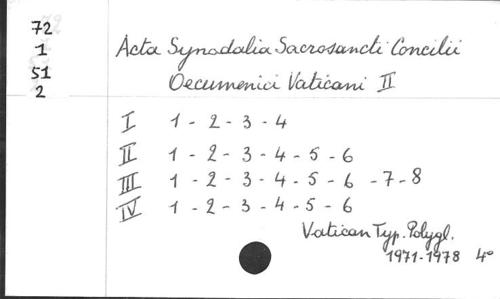 72
1
51
2
Acta Synodalia Sacrosancti Concilii
Oecumenici Vaticani II
I 1 - 2 - 3 - 4
II 1 - 2 - 3 - 4 - 5 - 6
III 1 - 2 - 3 - 4 - 5 - 6 - 7 - 8
IV 1 - 2 - 3 - 4 - 5 - 6
Vatican Typ. Polygl.
1971-1978 4°